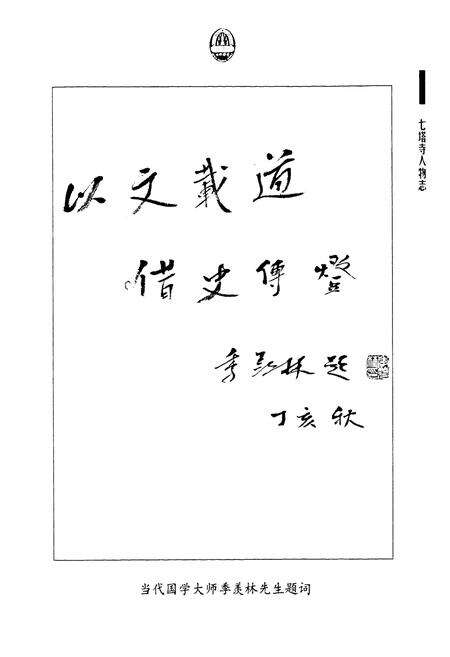 七塔寺人物志
以文載道
借史傳燈
季羡林題
丁亥秋
当代国学大师季羡林先生题词